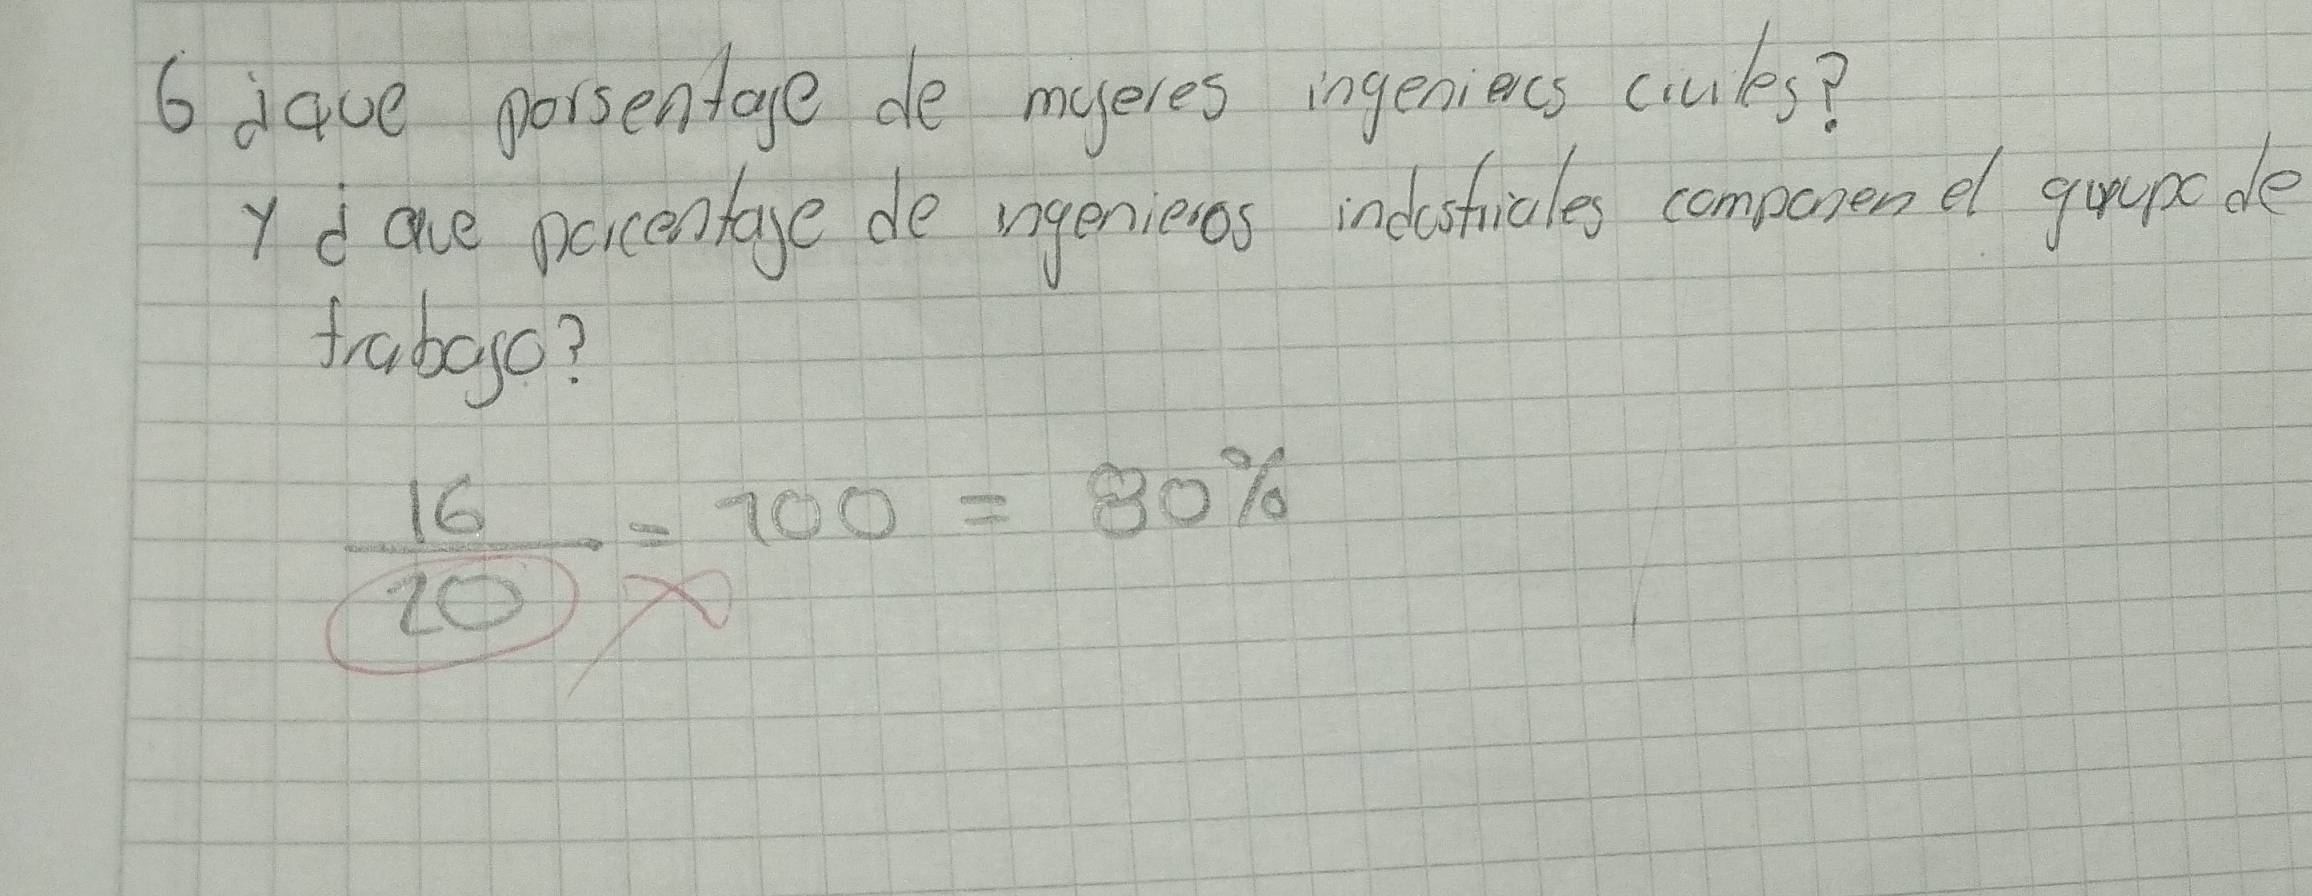 6 ¿que porsentaje de mujeres ingenieras civiles?
y ¿que porcentaje de ingenieros industriales componen el grupo de
trabajo?
16
— = 100 = 80%
20